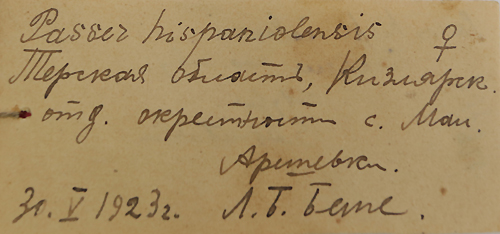 Passer hispaniolensis ♀
Терская область, Кизлярск.
отд. окрестности с. Мал.
Арешевки.
30. V 1923 г. Л. Б. Беме.